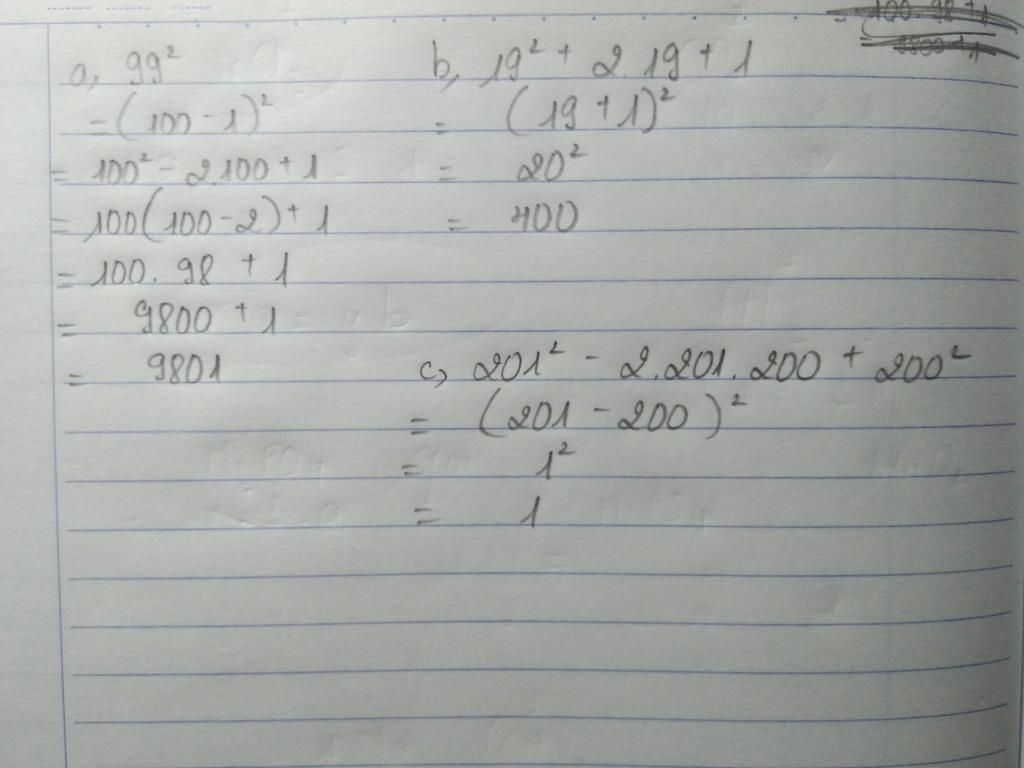 a, 99²
= (100 - 1)²
= 100² - 2.100 + 1
= 100(100 - 2) + 1
= 100. 98 + 1
= 9800 + 1
= 9801
b, 19² + 2.19 + 1
= (19 + 1)²
= 20²
= 400
c, 201² - 2.201.200 + 200²
= (201 - 200)²
= 1²
= 1